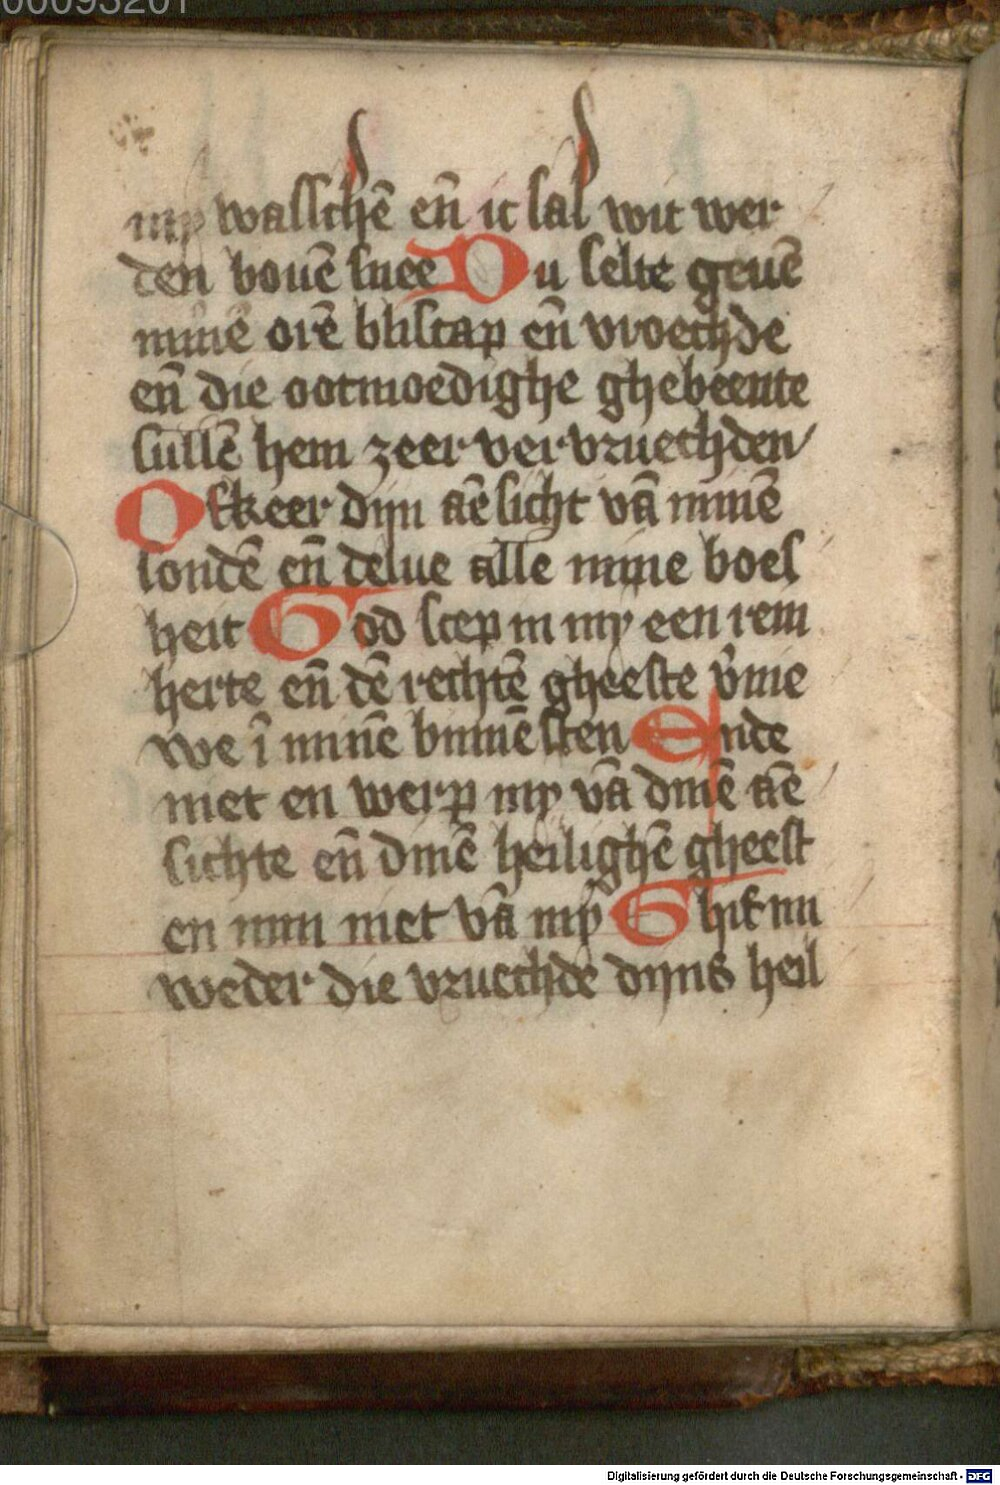 00093201
my wasschē eñ ic sal wit wer
den bouē snee Du selte geuē
minē orē bliscap eñ vroechde
eñ die ootmoedighe ghebeente
sullē hem zeer vervruechden
Ofkeer dijn āēsicht vā minē
sondē eñ delue alle mine boes
heit God scep in my een rein
herte eñ dē rechtē gheeste v̄nie
we ī minē binnēsten Ende
niet en werp my vā dinē āē
sichte eñ dinē heilighē gheest
en nim niet vā my Ghif mi
weder die vruechde dijns heil
Digitalisierung gefördert durch die Deutsche Forschungsgemeinschaft - DFG